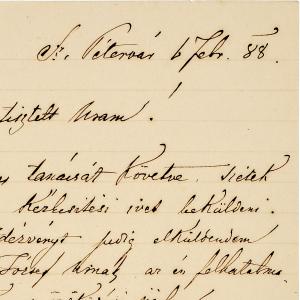 Sz. Pétervár 6 Febr. 88.
!
tisztelt Uram.
tanácsát követve sietek
kézbesitési ivet beküldeni.
pedig elküldendem
József úrnak, az én felhatalma